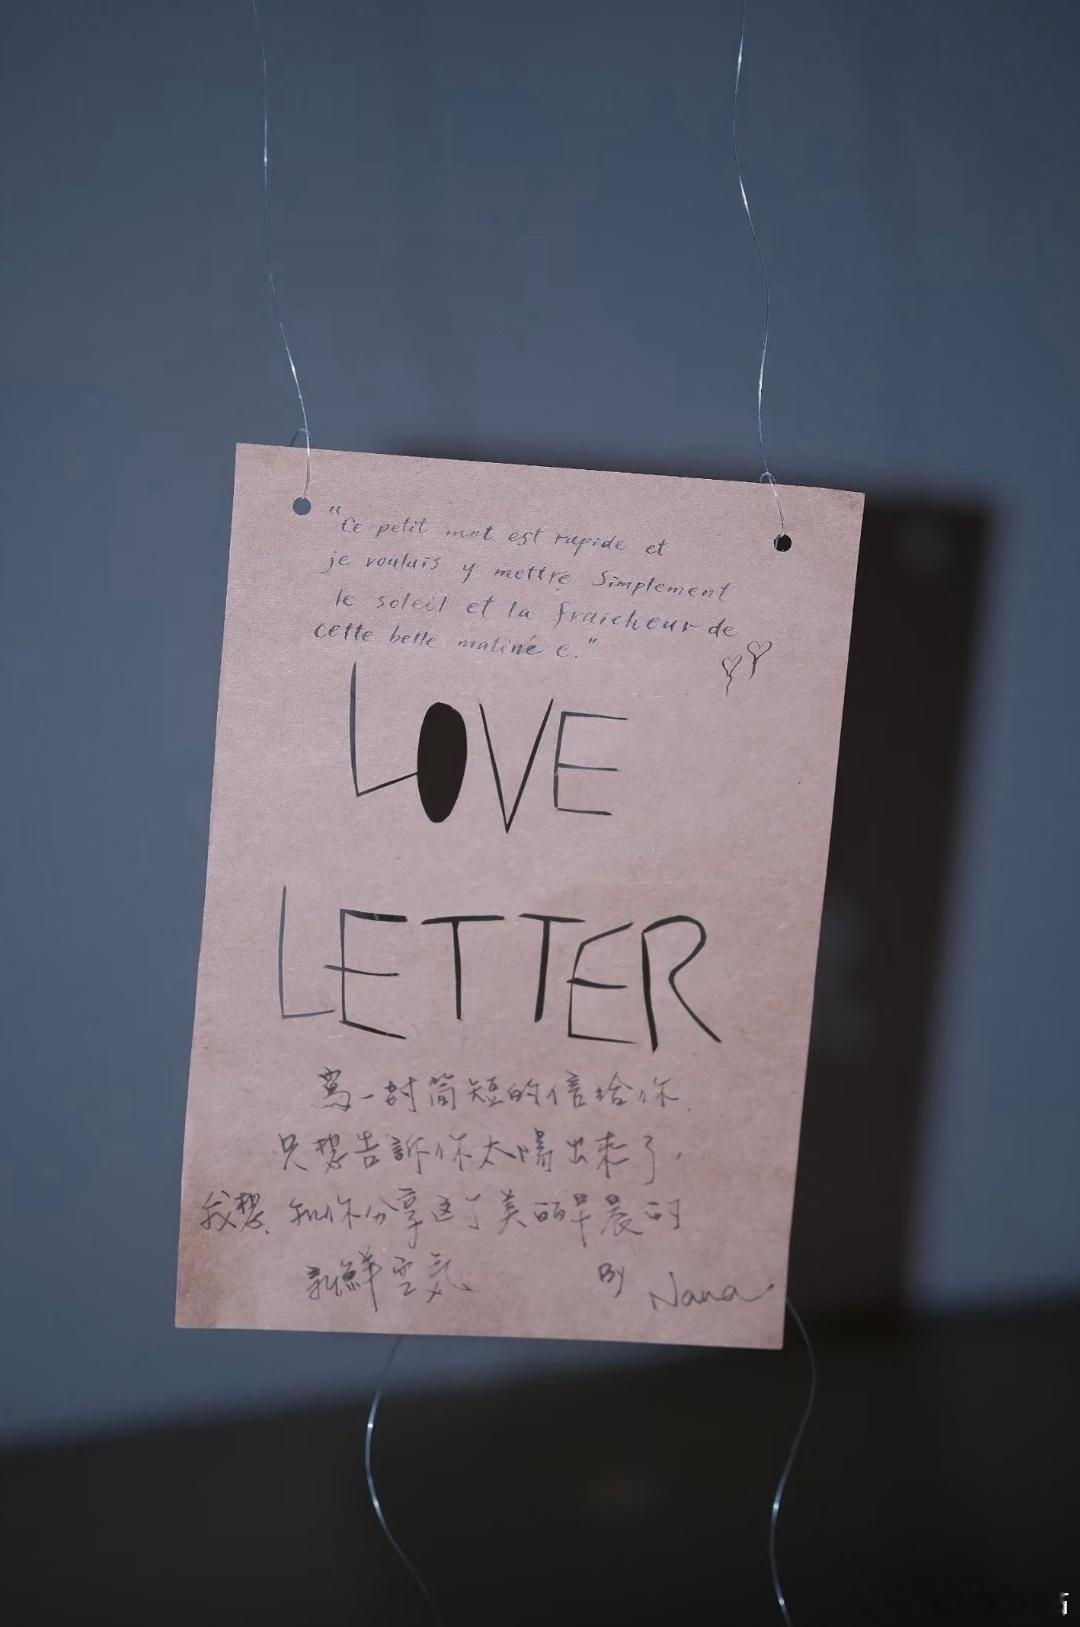 "Ce petit mot est rapide et
je voulais y mettre simplement
le soleil et la fraîcheur de
cette belle matinée e."
LOVE
LETTER
写一封简短的信给你.
只想告訴你太陽出来了.
我想和你分享这个美丽早晨的
新鮮空氣
By Nana